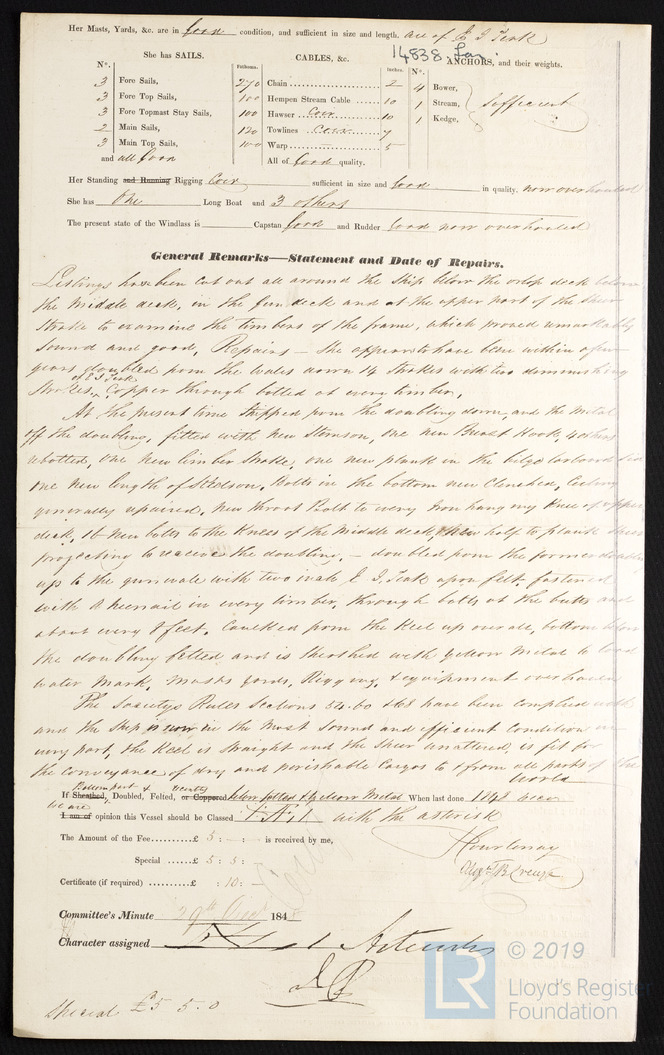 Her Masts, Yards, &c. are in Good condition, and sufficient in size and length. are of E I Teak
14838 Lon
She has SAILS. CABLES, &c. ANCHORS, and their weights.
Nº. Fathoms. Inches. Nº.
3 Fore Sails, 270 Chain 2 4 Bower,
3 Fore Top Sails, 100 Hempen Stream Cable 10 1 Stream, Sufficient
3 Fore Topmast Stay Sails, 100 Hawser Coir 10 1 Kedge,
2 Main Sails, 120 Towlines Coir 7
3 Main Top Sails, 100 Warp 5
and all Good All of Good quality.
Her Standing and Running Rigging Coir sufficient in size and Good in quality. now overhauled
She has One Long Boat and 3 others
The present state of the Windlass is Capstan Good and Rudder Good now overhauled
General Remarks—Statement and Date of Repairs.
Listings have been cut out all around the Ship below the orlop deck below
the middle deck, in the Gun deck and at the upper part of the Sheer
Strake to examine the timbers of the frame, which proved remarkably
Sound and good, Repairs – She appears to have been within a few
years doubled from the Wales down 14 Strakes with two diminishing
of E I Teak
Strakes, Copper through bolted at every timber.
At the present time Stripped from the doubling down, and the Metal
off the doubling, fitted with New Stemson, One new Breast Hook, 4 others
rebolted, One New limber Strake, one new plank in the bilge larboard side
One New length of Stelson, Bolts in the bottom new Clenched, Ceiling
generally repaired, New throat Bolt to every Iron hanging Knee of upper
deck, 16 New bolts to the Knees of the Middle deck, half to plank
projecting to receive the doubling, – doubled from the former doubling
up to the gunwale with two inch E I Teak upon felt fastened
with A treenail in every timber, through bolts at the butts and
about every 8 feet. Caulked from the Keel up over all, bottom below
the doubling felted and is sheathed with yellow Metal to load
water Mark. Masts, Yards, Rigging, & equipment overhauled
The Society's Rules Sections 54. 60 & 68 have been complied with
and the Ship is now in the Most Sound and efficient Condition in
every part, the Keel is Straight and the Sheer unaltered, is fit for
the conveyance of dry and perishable Cargos to & from all parts of the
World
Bottom part &
If Sheathed, Doubled, Felted, or Coppered When felted & Yellow Metal When last done 1848
We are
I am of opinion this Vessel should be Classed Æ 1 with the asterisk
The Amount of the Fee......£ 5 : – : – is received by me,
Courtenay
Special ......£ 5 : 5 : –
Augt B Creuze
Certificate (if required) ..........£ : 10 : –
Committee's Minute 29th 184
Character assigned Æ 1 Asterisk
Special £5 5. 0
© 2019
LR
Lloyd's Register
Foundation